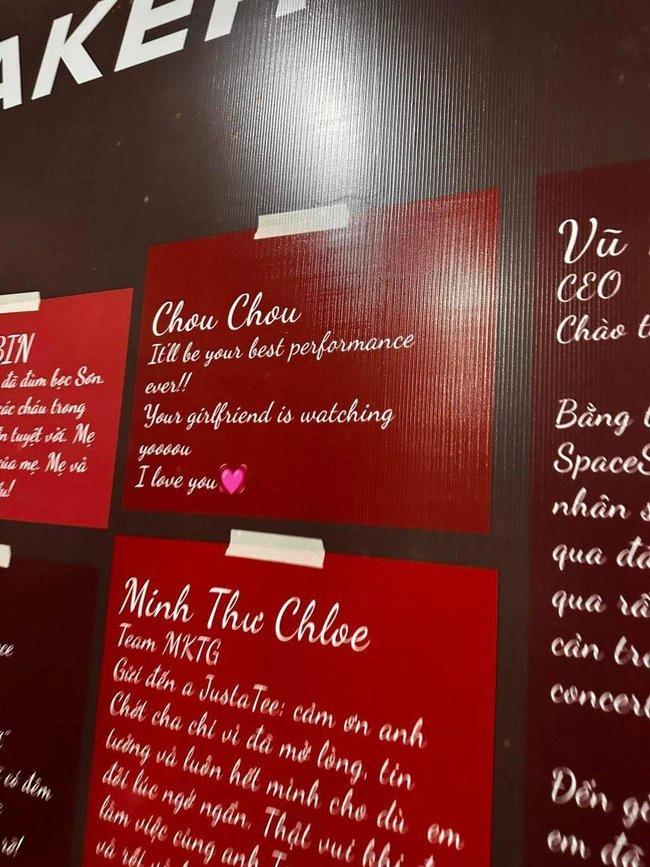 AKER
BIN
đã đùm bọc Sơn.
các cháu trong
tuyệt vời. Mẹ
của mẹ. Mẹ và
Chou Chou
It'll be your best performance
ever!!
Your girlfriend is watching
yoooou
I love you💓
Minh Thư Chloe
Team MKTG
Gửi đến a JustaTee: cảm ơn anh
Chốt cha chỉ vì đã mở lòng, tin
tưởng và luôn hết mình cho dù em
đôi lúc ngớ ngẩn. Thật vui khi
làm việc cùng anh T
và rồi
Vũ
CEO
Chào
Bằng
SpaceS
nhân
qua
qua
cản
concert
Đến
em
có đêm